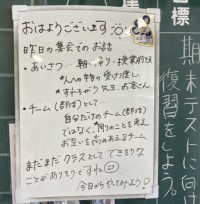 おはようございます
昨日の集会でのお話
・あいさつ…朝・帰り・授業前後
*人への物の受け渡し
*すれちがう先生、お客さん
・チーム(部活)として…
自分だけのチーム(部活)
ではなく、周りのことを考え
お互いを高めあえるチーム
まだまだクラスとしてできそうな
ことがありそうですね
今日からやってみよう!
目標
期末テストに向け
復習をしよう。